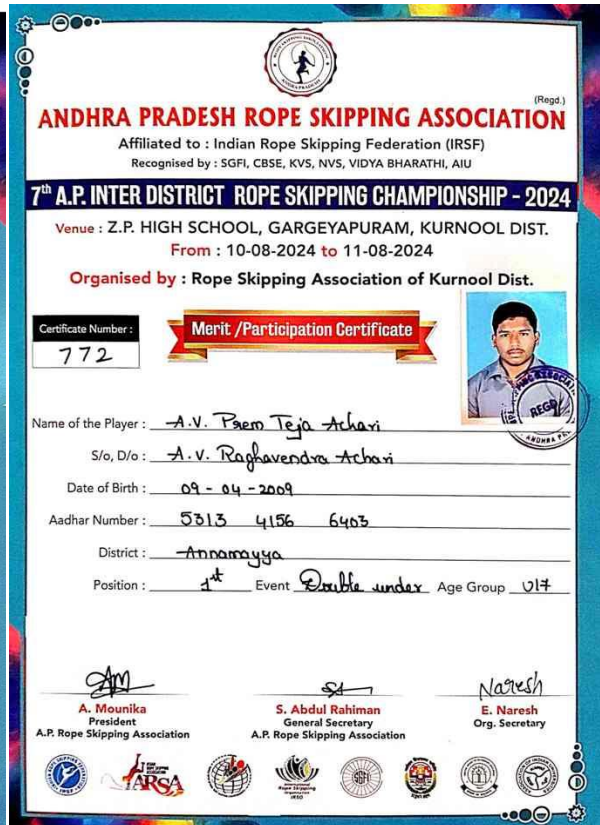 (Regd.)
ANDHRA PRADESH ROPE SKIPPING ASSOCIATION
Affiliated to : Indian Rope Skipping Federation (IRSF)
Recognised by : SGFI, CBSE, KVS, NVS, VIDYA BHARATHI, AIU
7th A.P. INTER DISTRICT ROPE SKIPPING CHAMPIONSHIP - 2024
Venue : Z.P. HIGH SCHOOL, GARGEYAPURAM, KURNOOL DIST.
From : 10-08-2024 to 11-08-2024
Organised by : Rope Skipping Association of Kurnool Dist.
Certificate Number :
772
Merit /Participation Certificate
REGD
Name of the Player : A.V. Prem Teja Achari
S/o, D/o : A.V. Raghavendra Achari
Date of Birth : 09 - 04 - 2009
Aadhar Number : 5313 4156 6403
District : Annamayya
Position : 1st Event Double under Age Group U17
Naresh
A. Mounika
President
A.P. Rope Skipping Association
S. Abdul Rahiman
General Secretary
A.P. Rope Skipping Association
E. Naresh
Org. Secretary
ARSA
SGFI